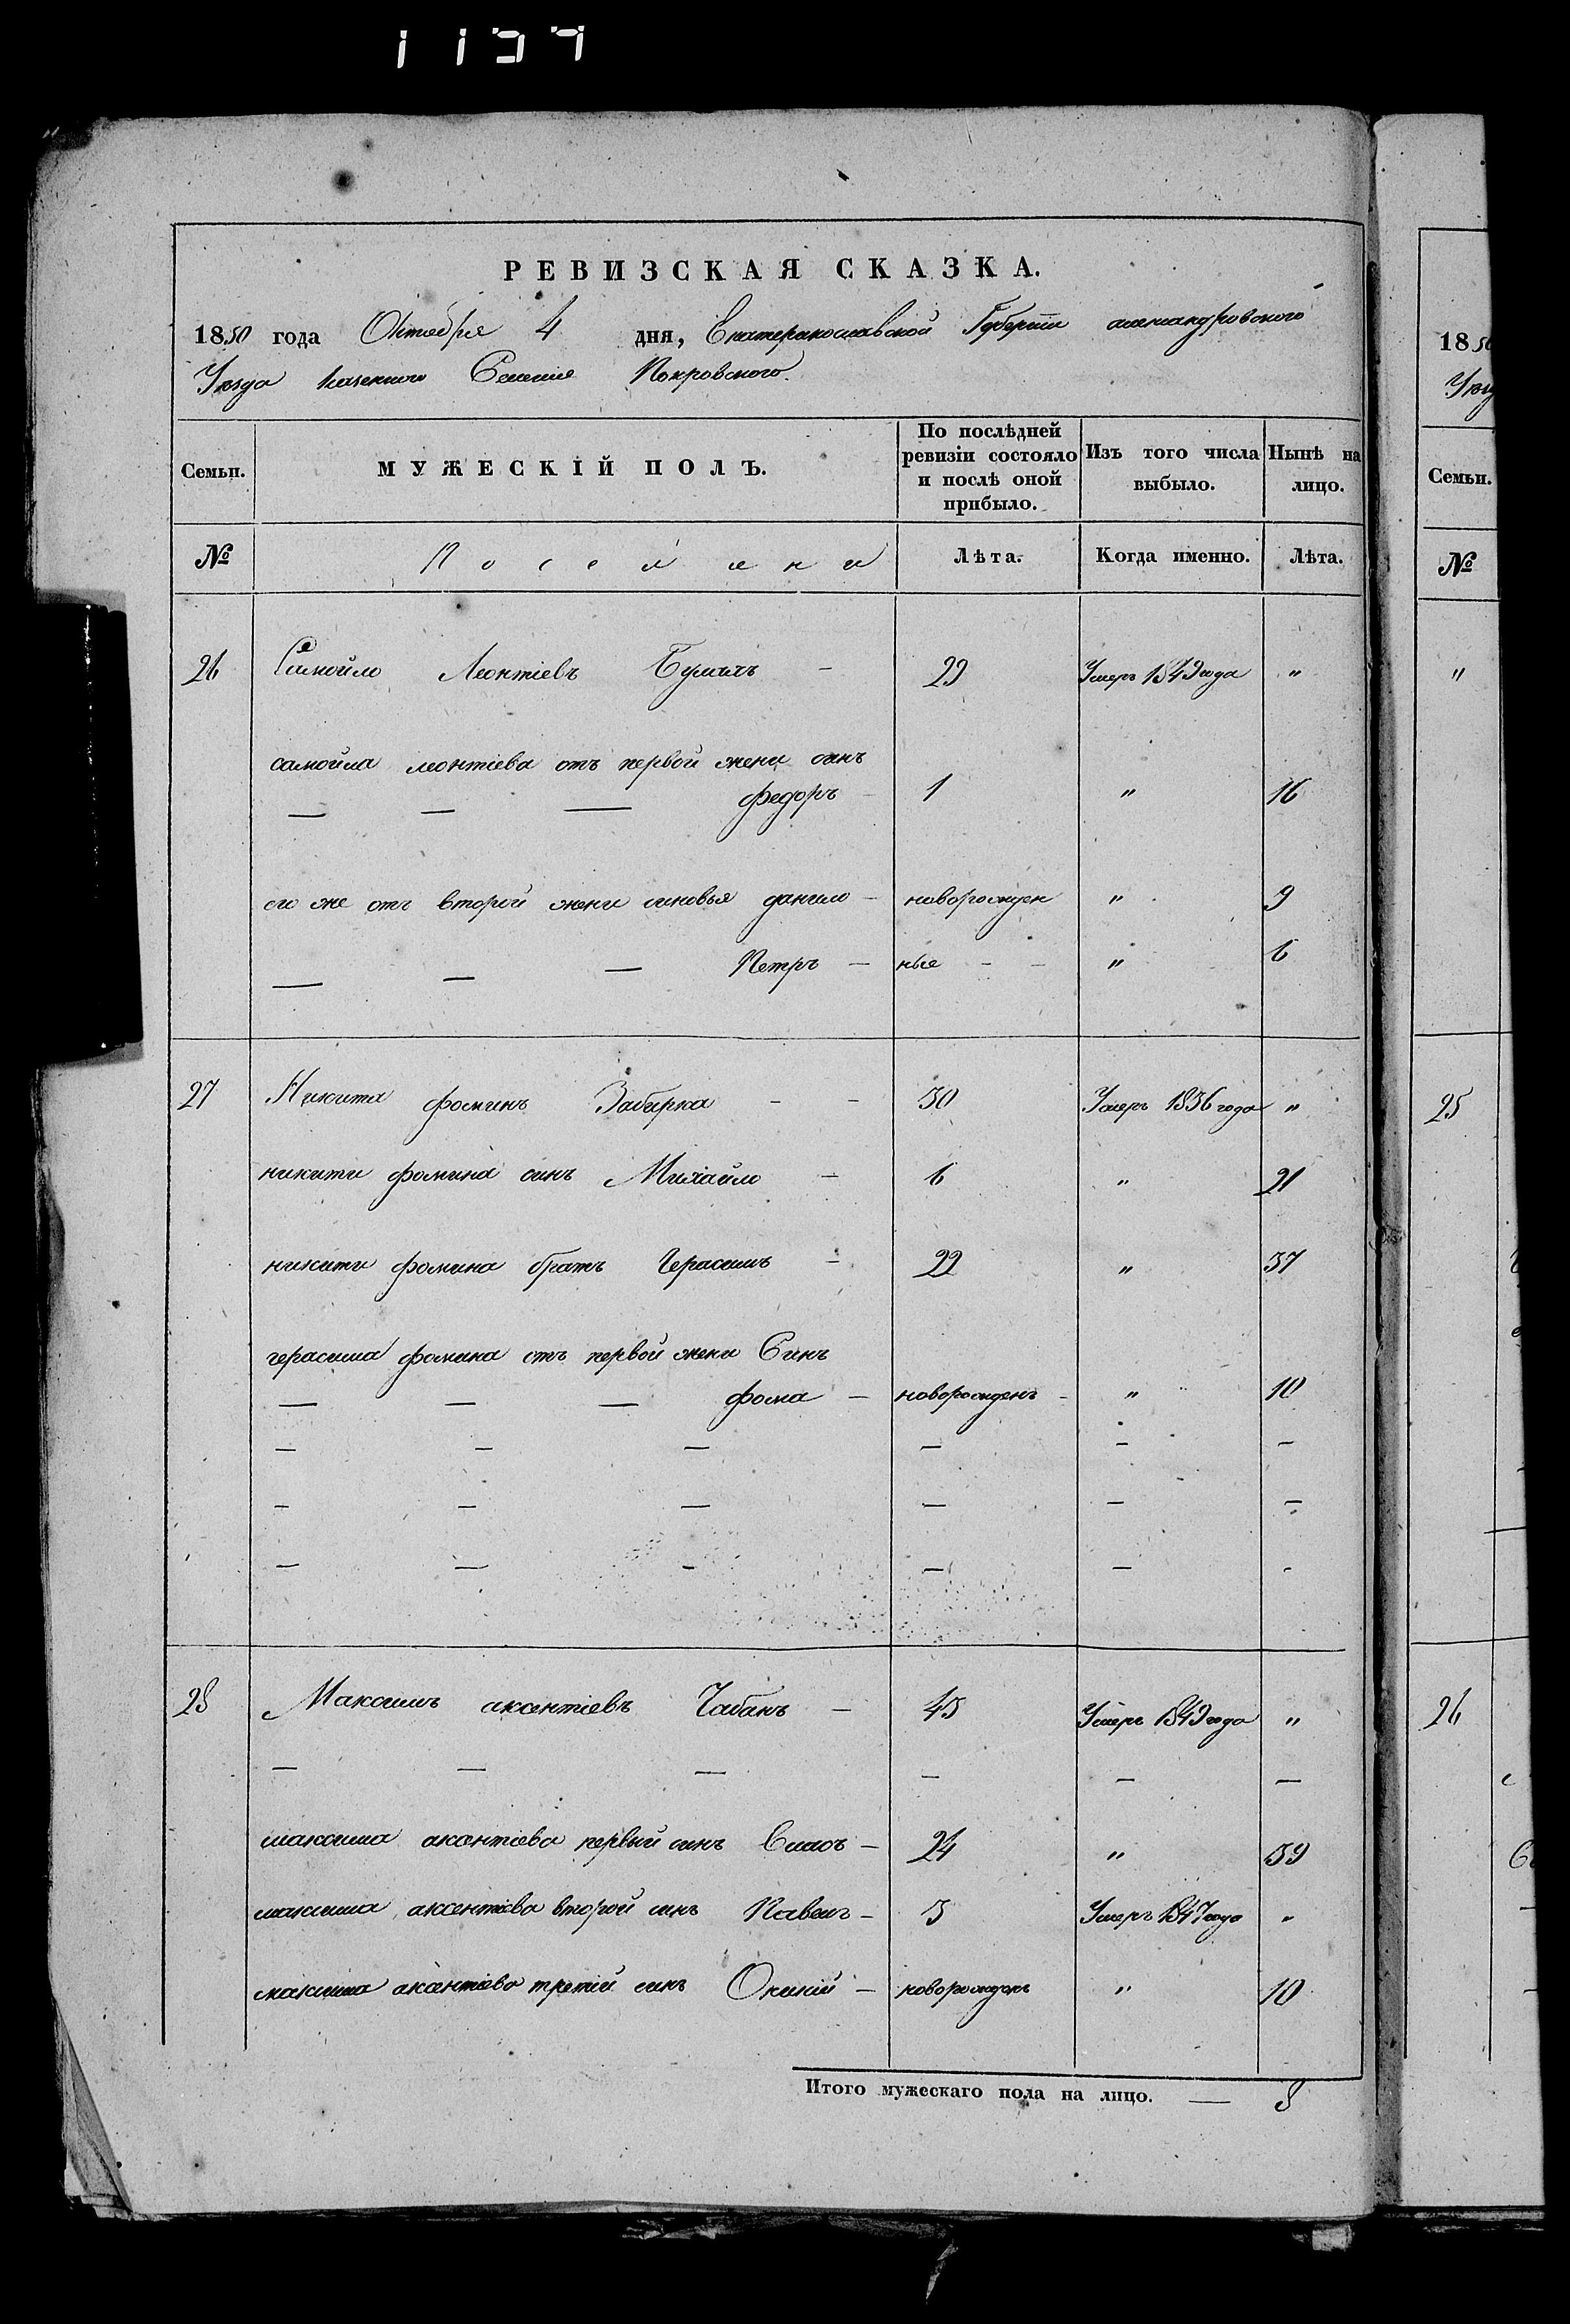 РЕВИЗСКАЯ СКАЗКА.
1850 года Октября 4 дня, Екатеринославской Губернии александровского
Уезда Казенного Селения Покровского.
Семьи. МУЖЕСКІЙ ПОЛЪ. По послѣдней ревизіи состояло и послѣ оной прибыло. Изъ того числа выбыло. Нынѣ на лицо.
№ Лѣта. Когда именно. Лѣта.
26 Самойло Леонтіевъ 29 Умеръ 1849 года "
самойла леонтіева отъ первой жени синъ
— — — федоръ — 1 " 16
его же отъ второй жени синовья данило — новорожден " 9
— — — Петръ — ные - - " 6
27 Никита фоминъ Забирка - - 30 Умеръ 1836 года "
никити фомина синъ Михайло — 6 " 21
никити фомина братъ Герасимъ — 22 " 37
герасима фомина отъ первой жени Синъ
— — — фома — новорожденъ - " 10
— — — — — —
— — — — — —
— — — — — —
28 Максимъ аксентіевъ Чабанъ — 45 Умеръ 1849 года "
— — — — — —
максима аксентіева первый синъ Власъ — 24 " 39
максима аксентіева второй синъ Павелъ — 3 Умеръ 1847 года "
максима аксентіева третій синъ — новорожденъ " 10
Итого мужескаго пола на лицо. — 8
1850
Семьи.
№
"
25
26